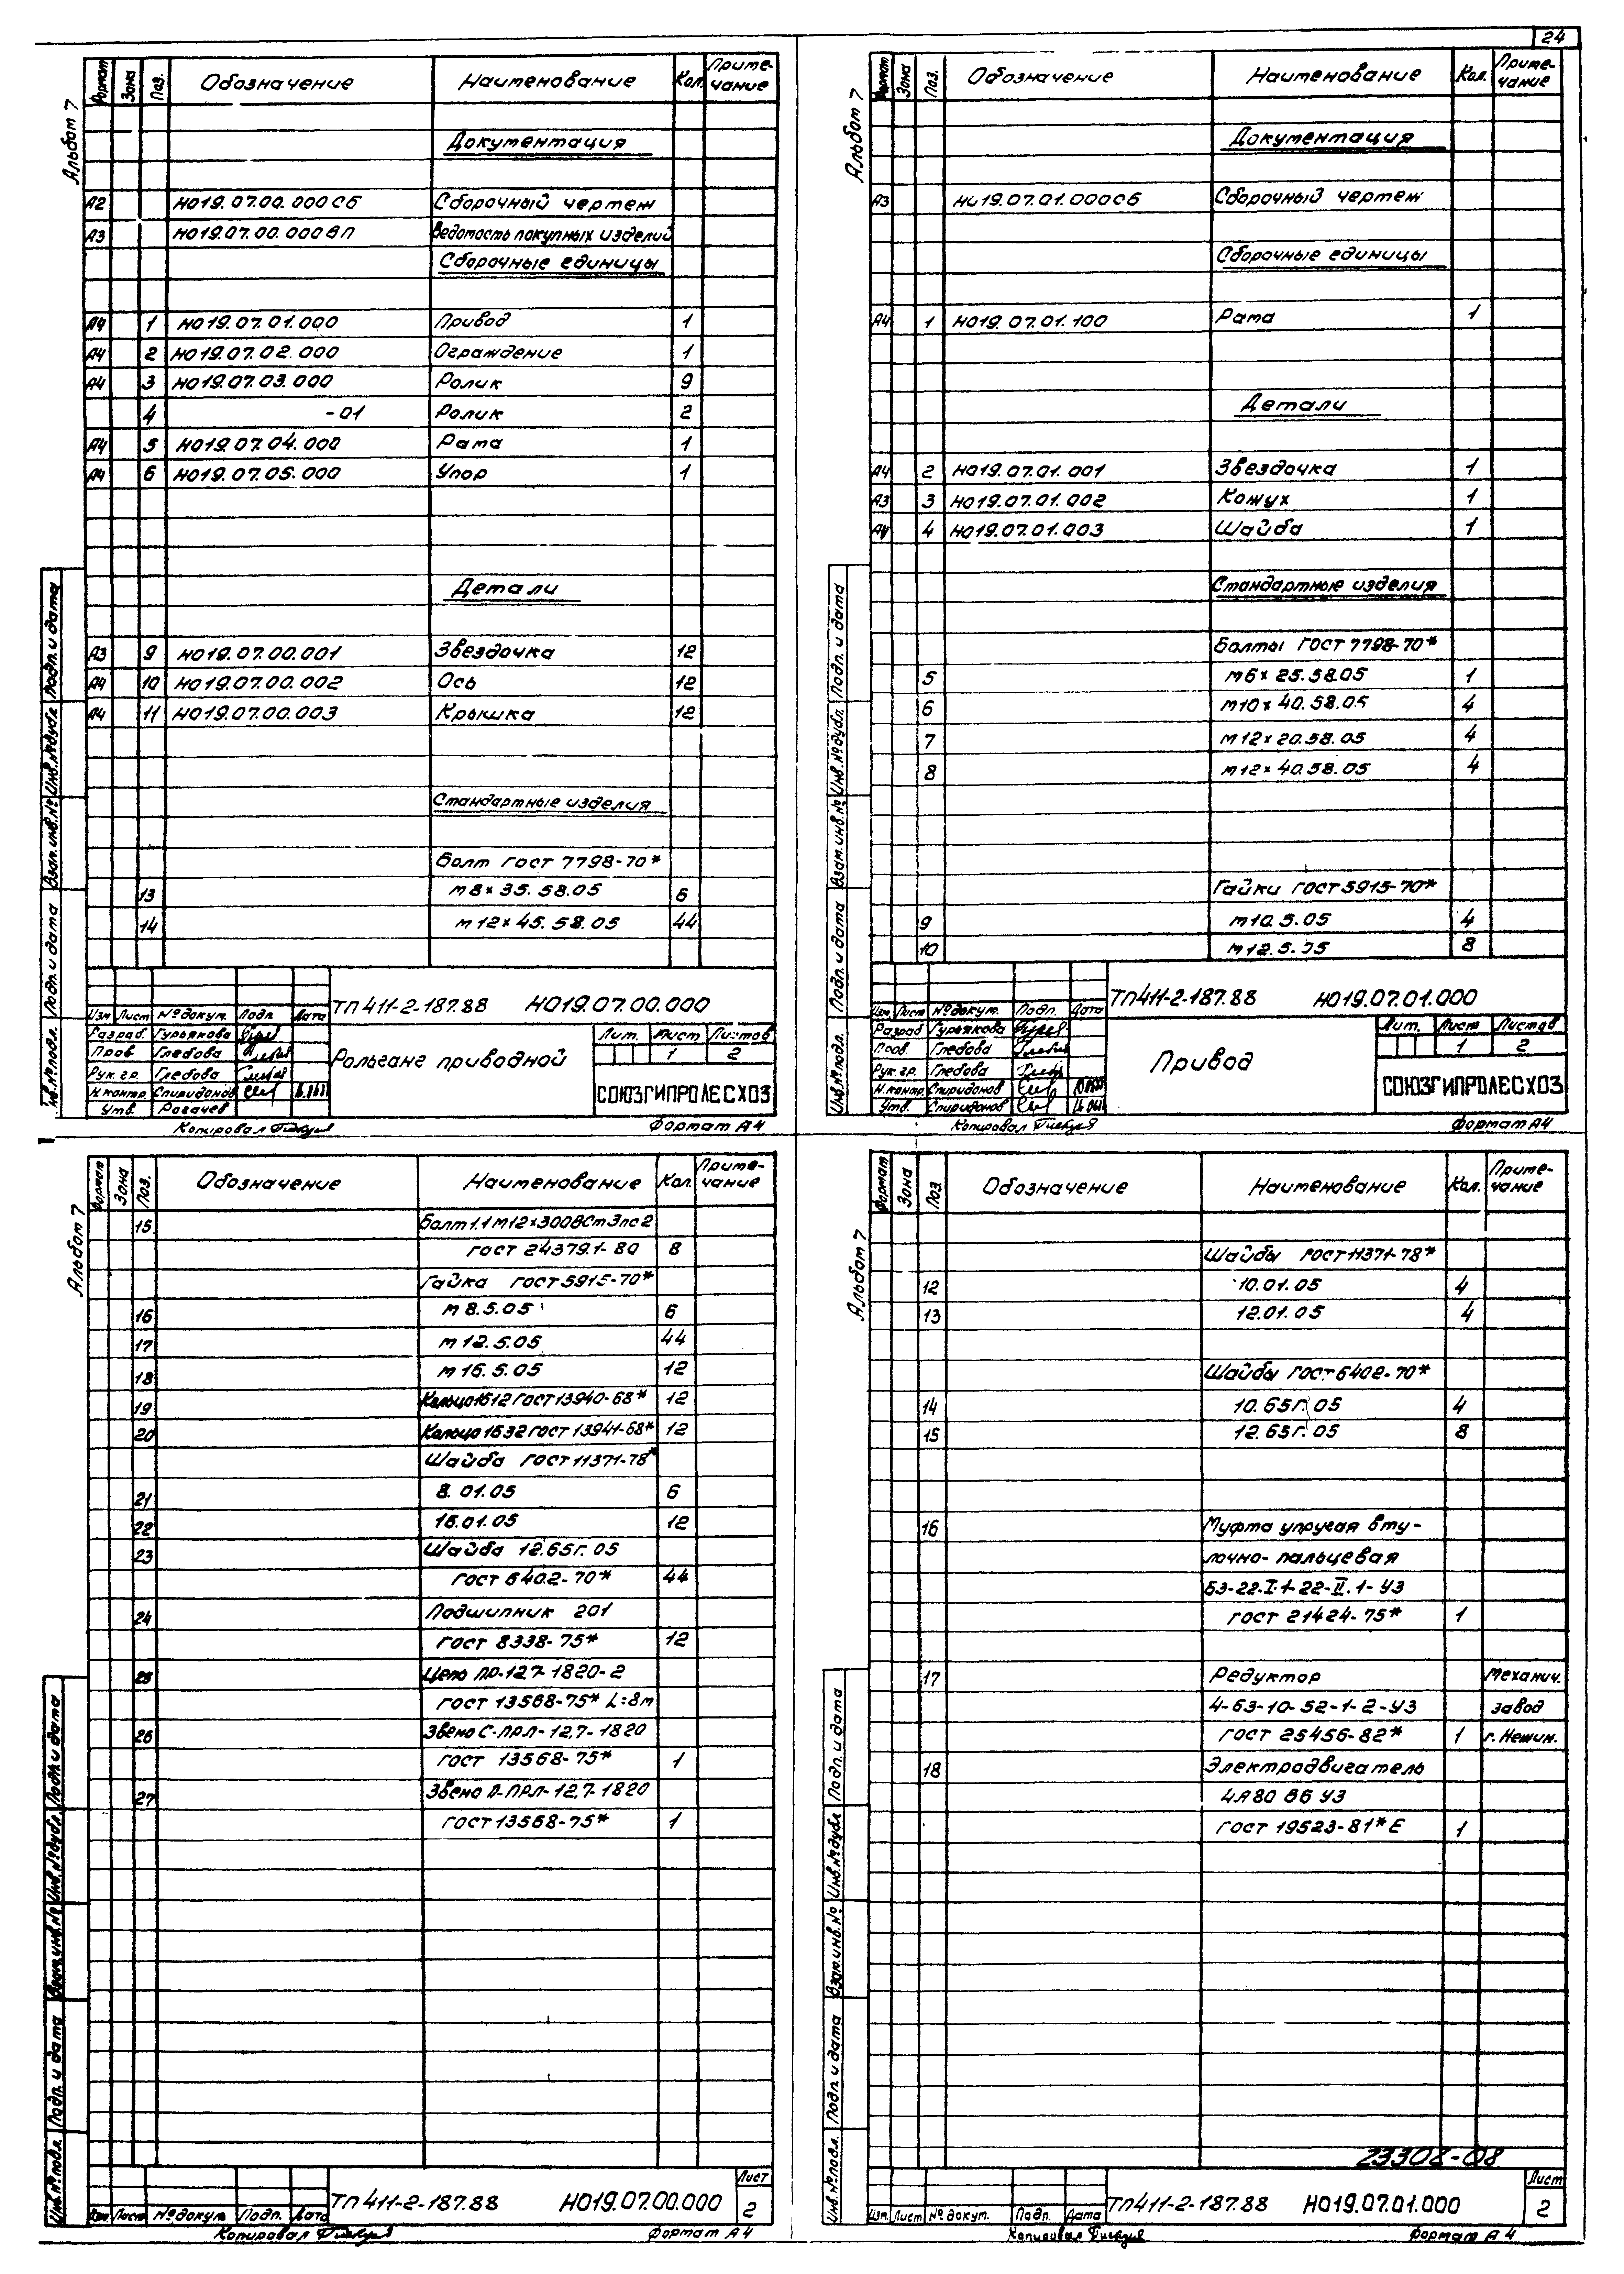 24
Альбом 7
Формат Зона Поз. Обозначение Наименование Кол. Примечание
Документация
А2 НО19.07.00.000СБ Сборочный чертеж
А3 НО19.07.00.000ВП Ведомость покупных изделий
Сборочные единицы
А4 1 НО19.07.01.000 Привод 1
А4 2 НО19.07.02.000 Ограждение 1
А4 3 НО19.07.03.000 Ролик 9
4 -01 Ролик 2
А4 5 НО19.07.04.000 Рама 1
А4 6 НО19.07.05.000 Упор 1
Детали
А3 9 НО19.07.00.001 Звездочка 12
А4 10 НО19.07.00.002 Ось 12
А4 11 НО19.07.00.003 Крышка 12
Стандартные изделия
Болт ГОСТ 7798-70*
13 М8×35.58.05 6
14 М12×45.58.05 44
Инв.№подл. Подп. и дата Взам.инв.№ Инв.№дубл. Подп. и дата
ТП411-2-187.88 НО19.07.00.000
Изм Лист №докум. Подп. Дата
Разраб. Гурьякова
Пров. Глебова
Рук.гр. Глебова
Н.контр. Спиридонов
Утв. Рогачев
Рольганг приводной
Лит. Лист Листов
1 2
СОЮЗГИПРОЛЕСХОЗ
Копировал Формат А4
Альбом 7
Формат Зона Поз. Обозначение Наименование Кол. Примечание
Документация
А3 НО19.07.01.000СБ Сборочный чертеж
Сборочные единицы
А4 1 НО19.07.01.100 Рама 1
Детали
А4 2 НО19.07.01.001 Звездочка 1
А3 3 НО19.07.01.002 Кожух 1
А4 4 НО19.07.01.003 Шайба 1
Стандартные изделия
Болты ГОСТ 7798-70*
5 М6×25.58.05 1
6 М10×40.58.05 4
7 М12×20.58.05 4
8 М12×40.58.05 4
Гайки ГОСТ 5915-70*
9 М10.5.05 4
10 М12.5.05 8
Инв.№подл. Подп. и дата Взам.инв.№ Инв.№дубл. Подп. и дата
ТП411-2-187.88 НО19.07.01.000
Изм. Лист №докум. Подп. Дата
Разраб Гурьякова
Пров. Глебова
Рук.гр. Глебова
Н.контр. Спиридонов
Утв. Спиридонов
Привод
Лит. Лист Листов
1 2
СОЮЗГИПРОЛЕСХОЗ
Копировал Формат А4
Альбом 7
Формат Зона Поз. Обозначение Наименование Кол. Примечание
15 Болт 1.1М12×300ВСт3пс2
ГОСТ 24379.1-80 8
Гайка ГОСТ 5915-70*
16 М8.5.05 6
17 М12.5.05 44
18 М16.5.05 12
19 Кольцо1Б12 ГОСТ 13940-68* 12
20 Кольцо 1Б32 ГОСТ 13941-68* 12
Шайба ГОСТ 11371-78*
21 8.01.05 6
22 16.01.05 12
23 Шайба 12.65Г.05
ГОСТ 6402-70* 44
24 Подшипник 201
ГОСТ 8338-75* 12
25 Цепь ПР-12.7-1820-2
ГОСТ 13568-75* L=8м
26 Звено С-ПРЛ-12,7-1820
ГОСТ 13568-75* 1
27 Звено П-ПРЛ-12,7-1820
ГОСТ 13568-75* 1
Инв.№подл. Подп. и дата Взам.инв.№ Инв.№дубл. Подп. и дата
Изм. Лист №докум. Подп. Дата
ТП411-2-187.88 НО19.07.00.000
Лист
2
Копировал Формат А4
Альбом 7
Формат Зона Поз Обозначение Наименование Кол. Примечание
Шайбы ГОСТ 11371-78*
12 10.01.05 4
13 12.01.05 4
Шайбы ГОСТ 6402-70*
14 10.65Г.05 4
15 12.65Г.05 8
16 Муфта упругая вту-
лочно-пальцевая
63-22.I.1-22-II.1-У3
ГОСТ 21424-75* 1
17 Редуктор Механич.
4-63-10-52-1-2-У3 завод
ГОСТ 25456-82* 1 г. Нежин.
18 Электродвигатель
4А80 В6 У3
ГОСТ 19523-81*Е 1
23308-08
Инв.№подл. Подп. и дата Взам.инв.№ Инв.№дубл. Подп. и дата
Изм. Лист №докум. Подп. Дата
ТП411-2-187.88 НО19.07.01.000
Лист
2
Копировал Формат А4